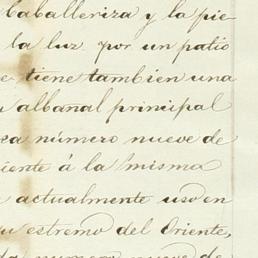 Caballeriza y la pie
la luz por un patio
e tiene tambien una
u albañal principal
sa número nueve de
iente á la misma
actualmente uso en
su estremo del Oriente,
numero nueve de